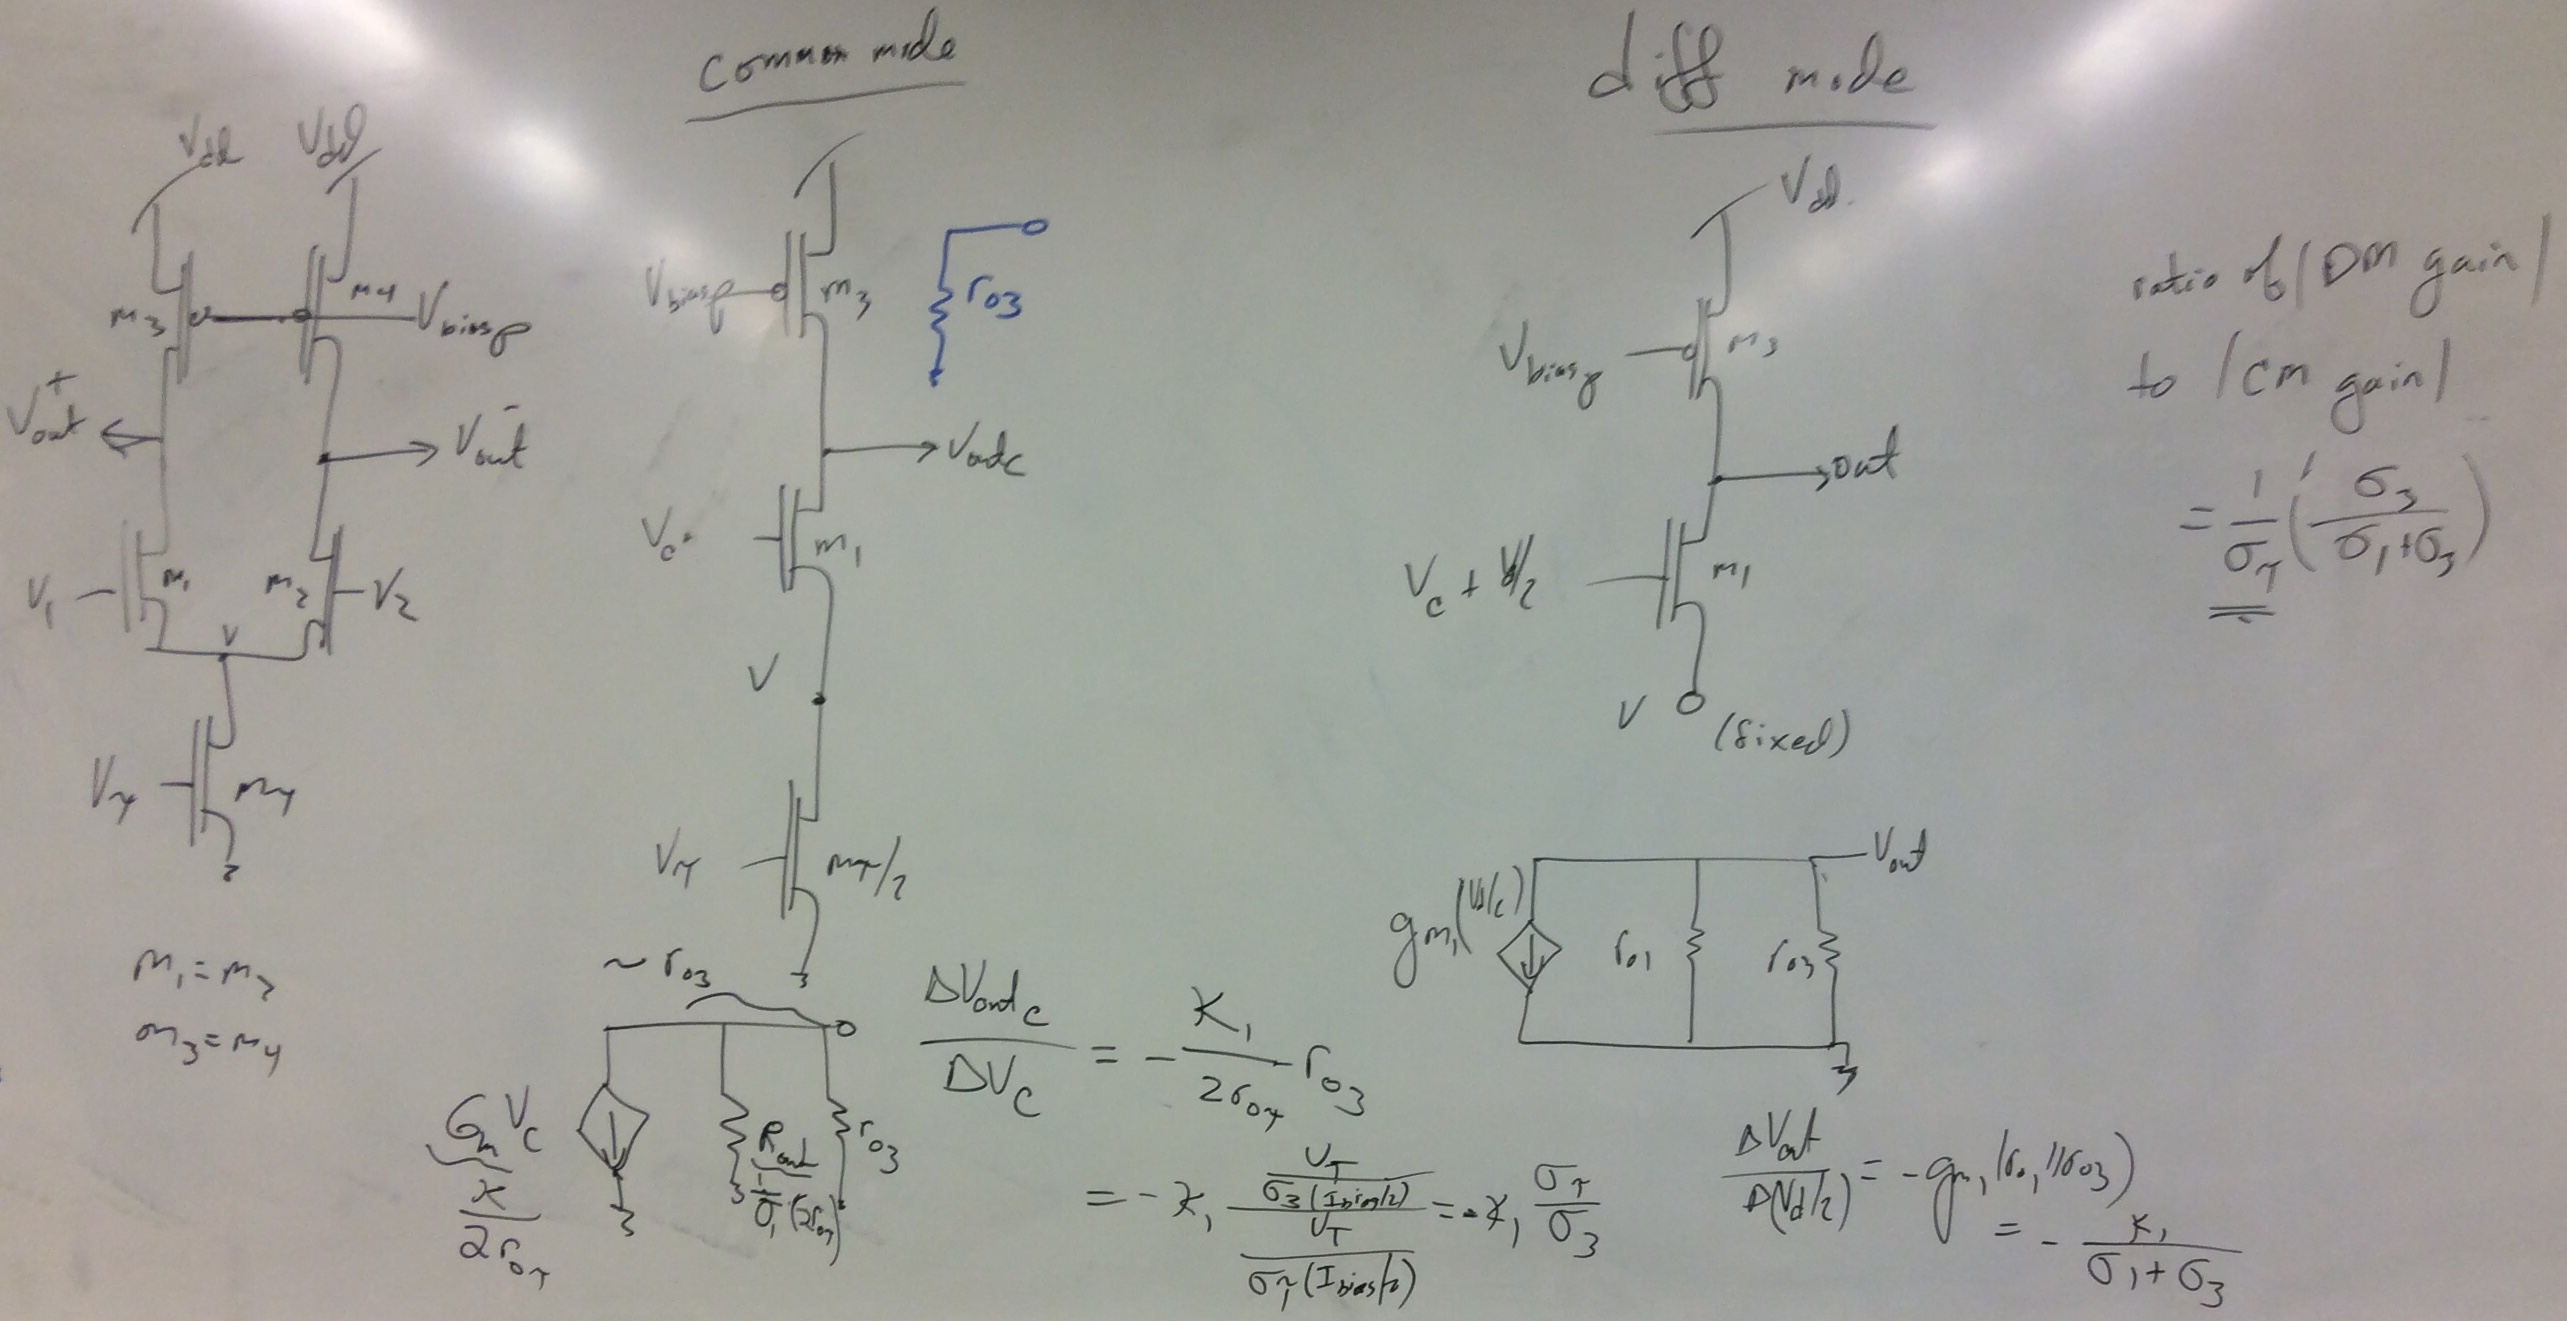 common mode
diff mode
Vdd
Vdd
M3
M4
Vbiasp
Vout+
Vout-
V1
M1
M2
V2
V
Vγ
Mγ
M1 = M2
M3 = M4
Vbiasp
M3
ro3
Voutc
Vc
M1
V
Vγ
Mγ/2
~ ro3
Gm Vc
κ / 2roγ
Rout
1/σ1 (2roγ)
ro3
ΔVoutc / ΔVc = - κ1 / 2roγ ro3
= - κ1 (UT / σ3(Ibias/2)) / (UT / σγ(Ibias/2)) = - κ1 σγ / σ3
Vdd
Vbiasp
M3
out
Vc + Vd/2
M1
V
(fixed)
Vout
gm1(Vd/2)
ro1
ro3
ΔVout / Δ(Vd/2) = -gm1(ro1 || ro3)
= - κ1 / σ1 + σ3
ratio of |DM gain|
to |CM gain|
= 1/σγ (σ3 / σ1+σ3)